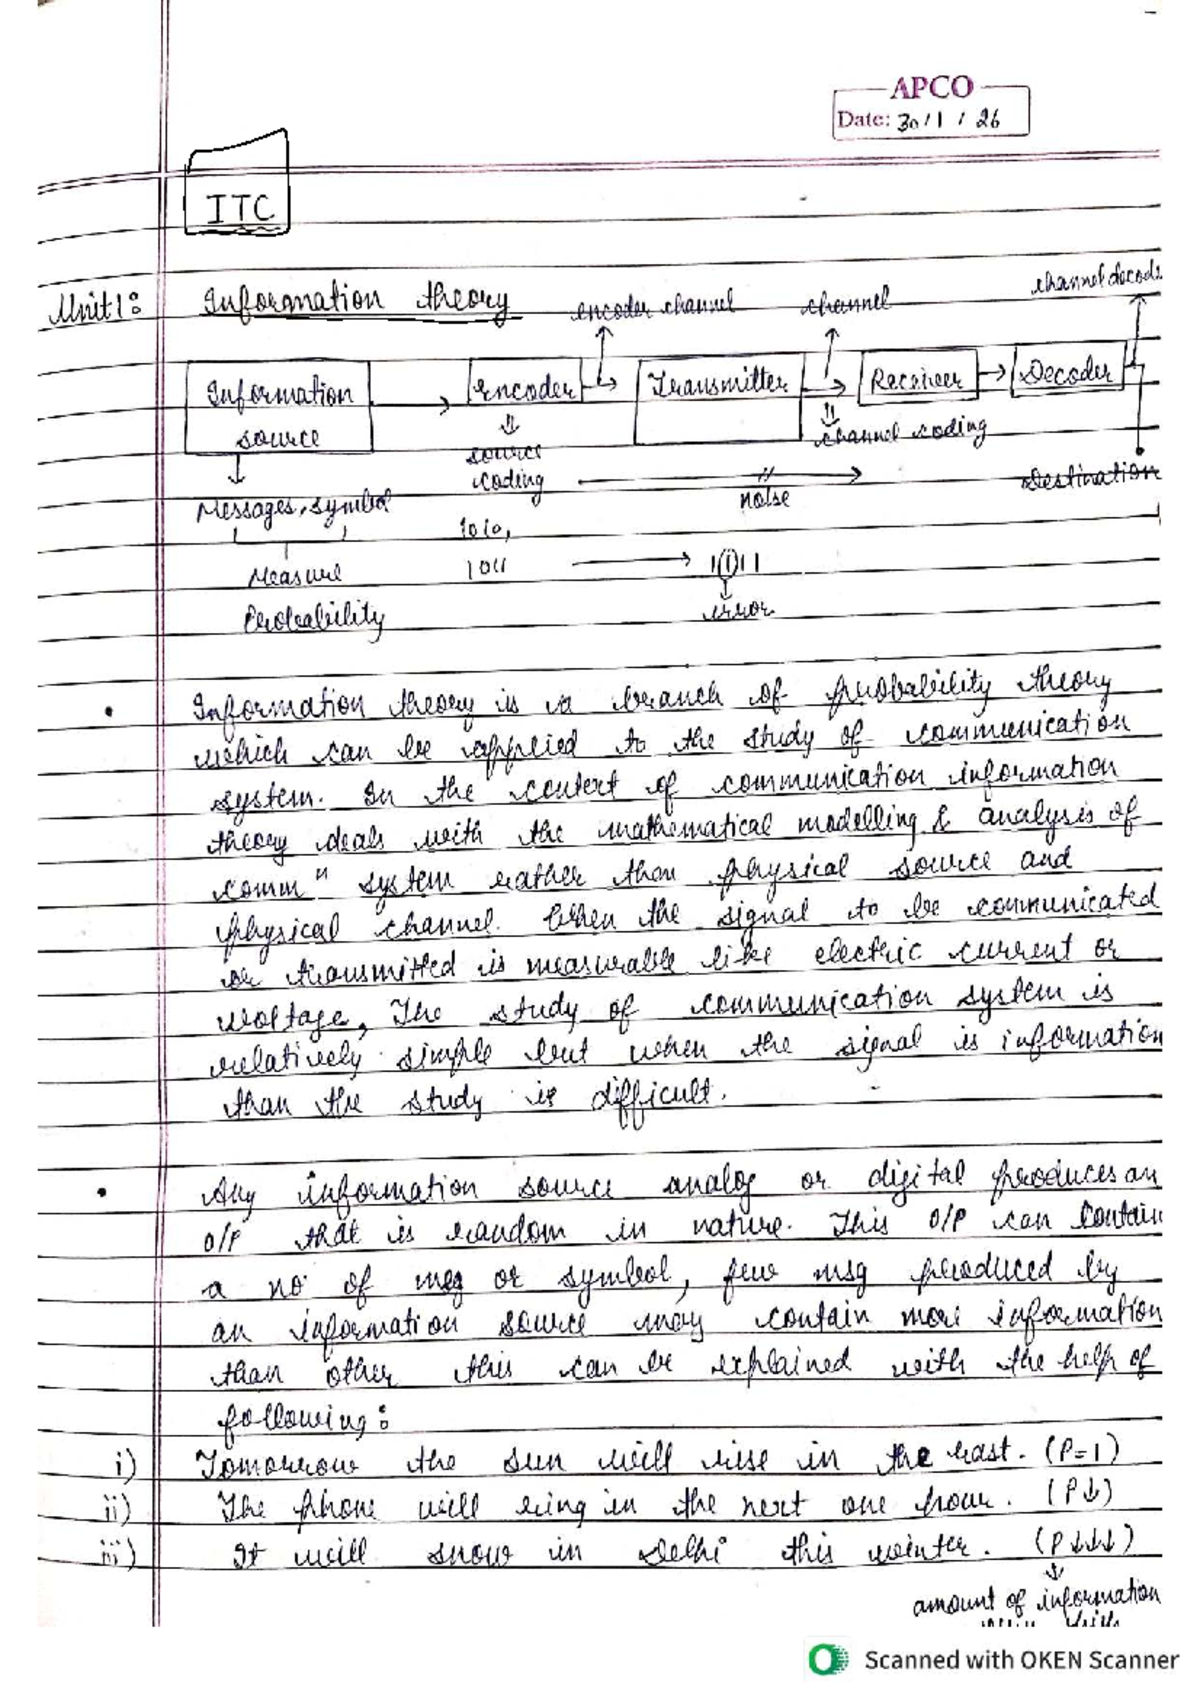 APCO
Date: 30 / 1 / 26
ITC
Unit 1: Information theory
encoder channel
channel
channel decod
Information source
encoder
Transmitter
Receiver
Decoder
source coding
channel coding
Messages, symbol
noise
Destination
1010,
1011
1111
Measure
error
Probability
• Information theory is a branch of probability theory
which can be applied to the study of communication
system. In the context of communication information
theory deals with the mathematical modelling & analysis of
comm" system rather than physical source and
physical channel. When the signal to be communicated
or transmitted is measurable like electric current or
voltage, The study of communication system is
relatively simple but when the signal is information
than the study is difficult.
• Any information source analog or digital produces an
O/P that is random in nature. This O/P can contain
a no. of msg or symbol, few msg produced by
an information source may contain more information
than other this can be explained with the help of
following:
i) Tomorrow the sun will rise in the east. (P=1)
ii) The phone will ring in the next one hour. (P↓)
iii) It will snow in Delhi this winter. (P↓↓↓)
amount of information
Scanned with OKEN Scanner